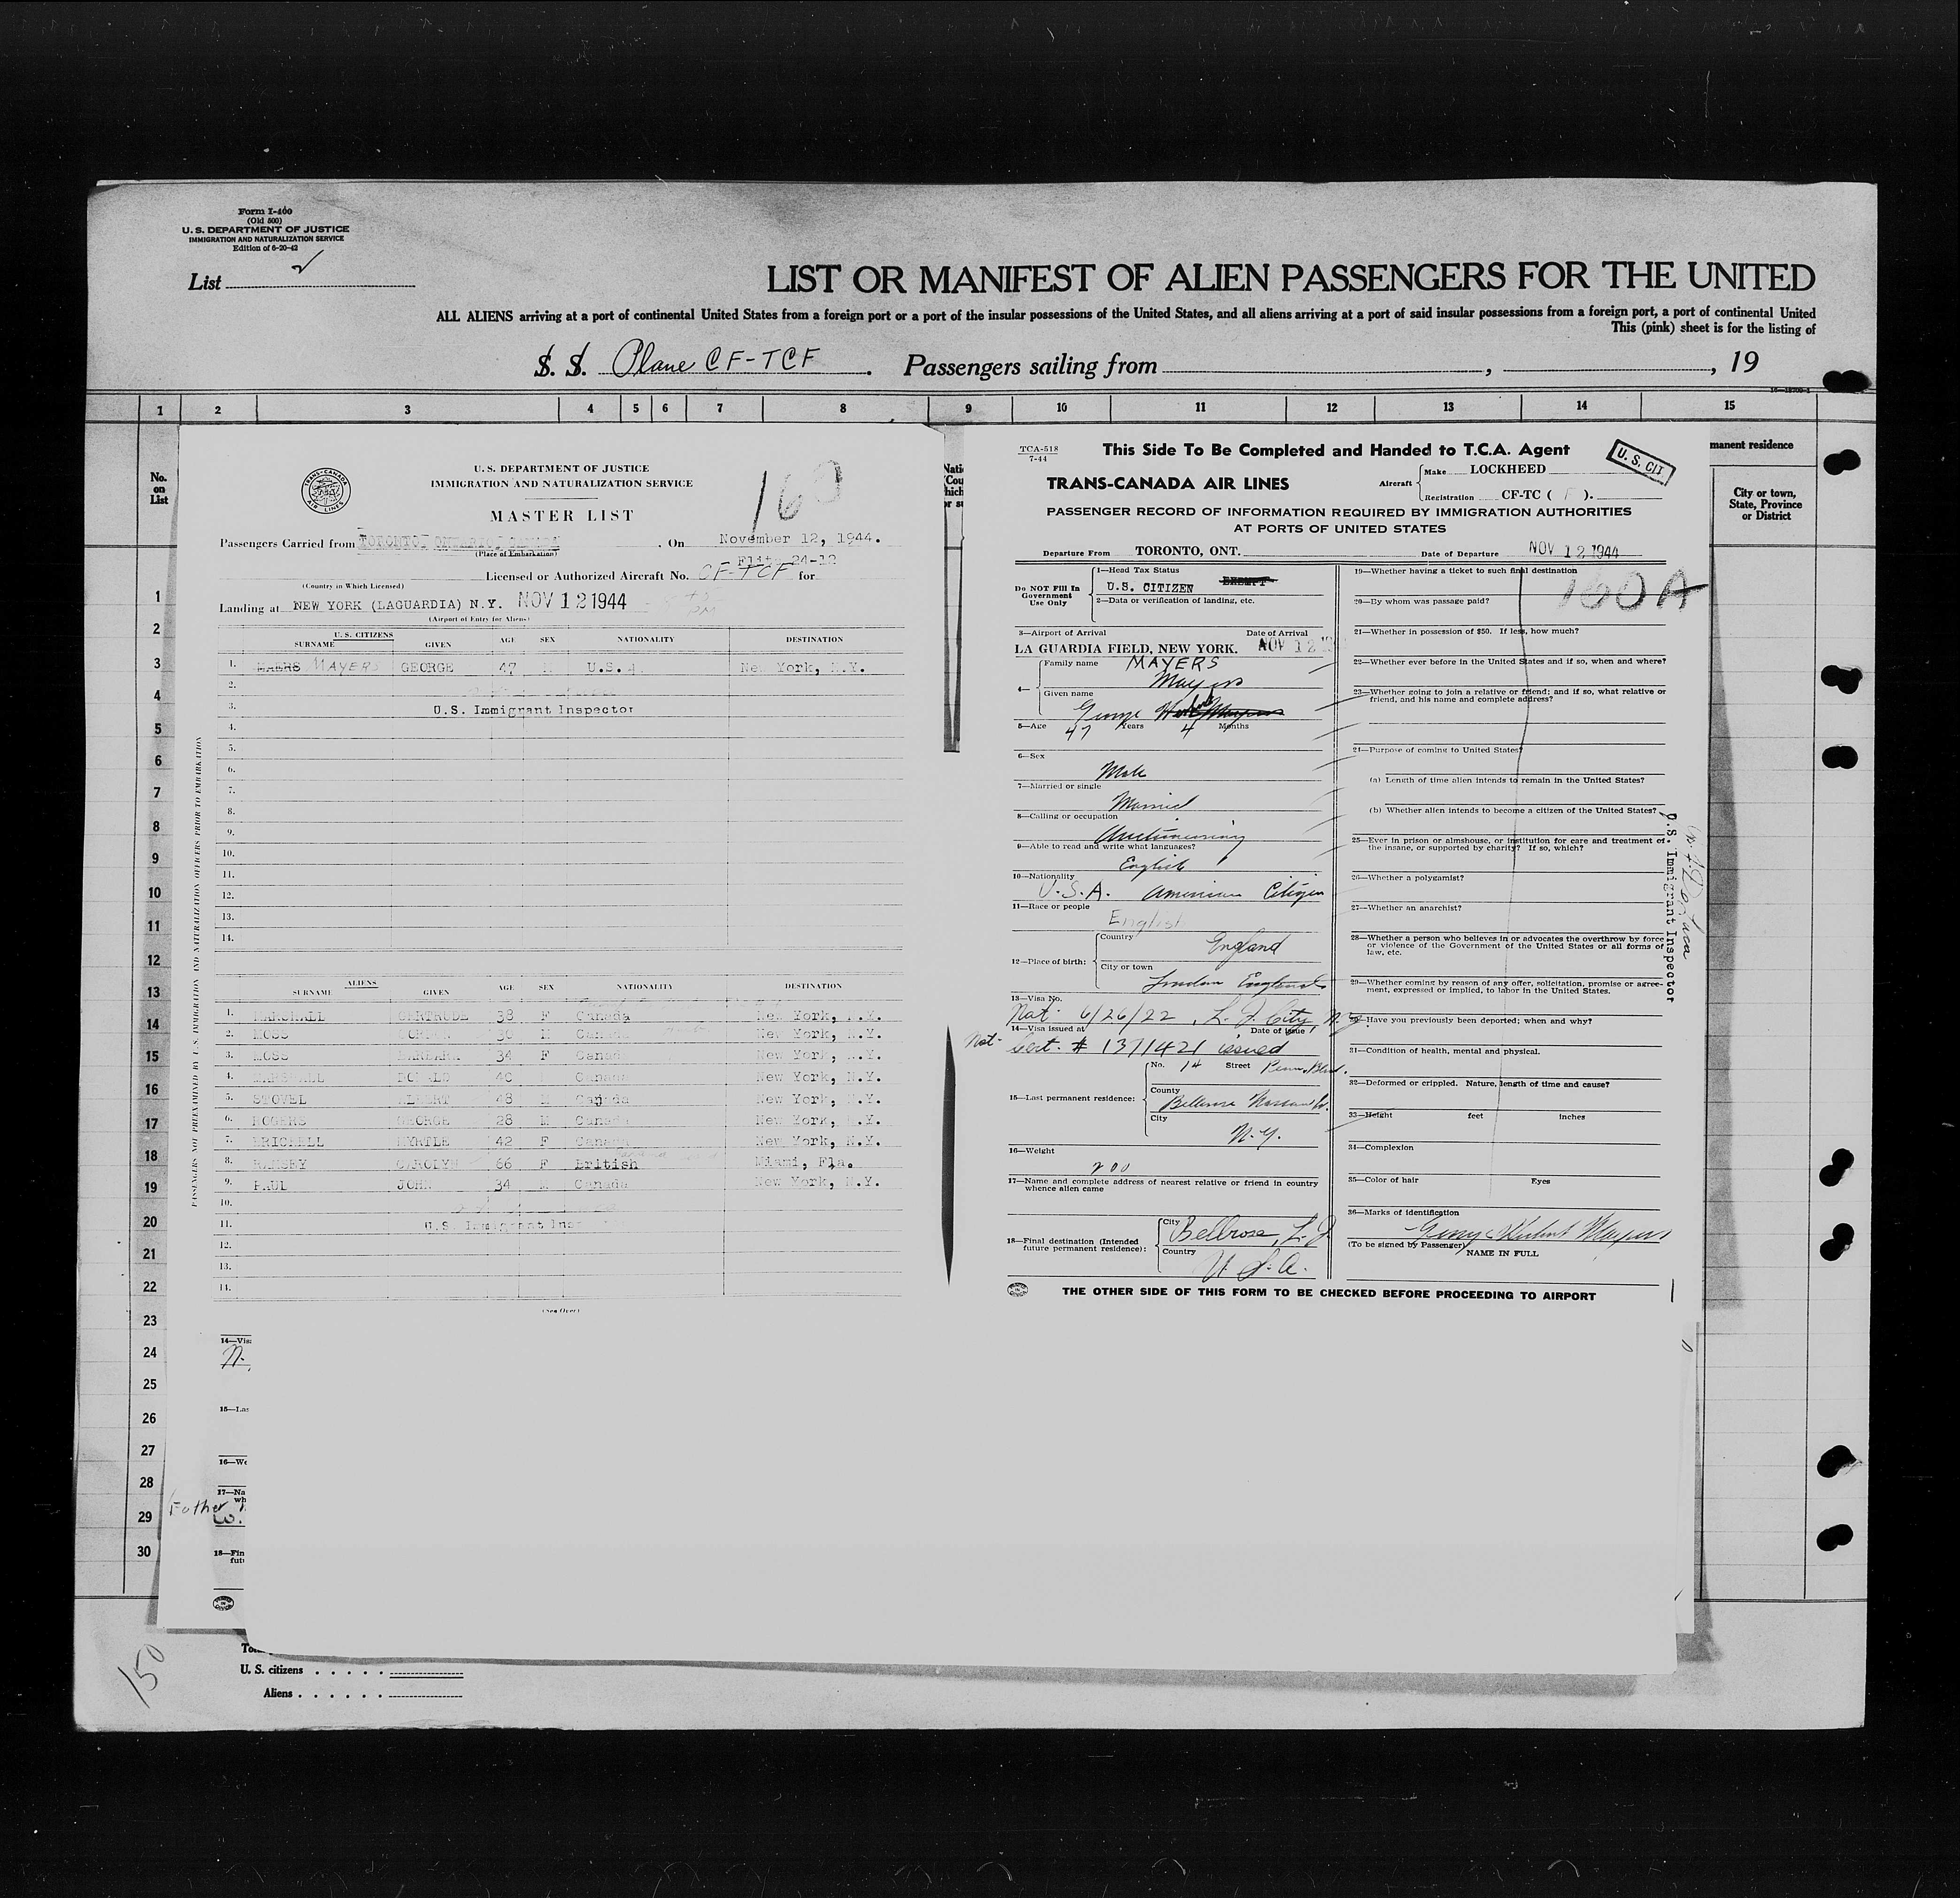 Form I-400
(Old 500)
U. S. DEPARTMENT OF JUSTICE
IMMIGRATION AND NATURALIZATION SERVICE
Edition of 6-20-42
List
LIST OR MANIFEST OF ALIEN PASSENGERS FOR THE UNITED
ALL ALIENS arriving at a port of continental United States from a foreign port or a port of the insular possessions of the United States, and all aliens arriving at a port of said insular possessions from a foreign port, a port of continental United
This (pink) sheet is for the listing of
S. S. Plane CF-TCF . Passengers sailing from , , 19
1 2 3 4 5 6 7 8 9 10 11 12 13 14 15
No. on List
manent residence
City or town, State, Province or District
1
2
3
4
5
6
7
8
9
10
11
12
13
14
15
16
17
18
19
20
21
22
23
24
25
26
27
28
29
30
TRANS-CANADA AIR LINES
U. S. DEPARTMENT OF JUSTICE
IMMIGRATION AND NATURALIZATION SERVICE
MASTER LIST
160
Passengers Carried from TORONTO, ONTARIO, CANADA . On November 12, 1944.
(Place of Embarkation)
Flit. 24-12
Licensed or Authorized Aircraft No. CF-TCF for
(Country in Which Licensed)
Landing at NEW YORK (LAGUARDIA) N.Y. NOV 12 1944
(Airport of Entry for Aliens)
U. S. CITIZENS
SURNAME GIVEN AGE SEX NATIONALITY DESTINATION
1. MAERS MAYERS GEORGE 47 M U.S.A. New York, N.Y.
2.
3. U.S. Immigrant Inspector
4.
5.
6.
7.
8.
9.
10.
11.
12.
13.
14.
PASSENGERS NOT PREEXAMINED BY U.S. IMMIGRATION AND NATURALIZATION OFFICERS PRIOR TO EMBARKATION
ALIENS
SURNAME GIVEN AGE SEX NATIONALITY DESTINATION
1. MARSHALL GERTRUDE 38 F Canada New York, N.Y.
2. MOSS GORDON 36 M Canada New York, N.Y.
3. MOSS BARBARA 34 F Canada New York, N.Y.
4. MARSHALL DONALD 40 Canada New York, N.Y.
5. STOVEL ALBERT 48 M Canada New York, N.Y.
6. ROGERS GEORGE 28 M Canada New York, N.Y.
7. BRICKELL MYRTLE 42 F Canada New York, N.Y.
8. RAMSEY CAROLYN 66 F British Miami, Fla.
9. PAUL JOHN 34 M Canada New York, N.Y.
10.
11. U.S. Immigrant Ins
12.
13.
14.
(See Over)
14—Vis
N.
15—Las
16—We
17—Na
wh
Father
W.
18—Fin
futu
150
U. S. citizens
Aliens
TCA-518
7-44
This Side To Be Completed and Handed to T.C.A. Agent
U. S. CIT
TRANS-CANADA AIR LINES
Aircraft Make LOCKHEED
Registration CF-TC ( F ).
PASSENGER RECORD OF INFORMATION REQUIRED BY IMMIGRATION AUTHORITIES
AT PORTS OF UNITED STATES
Departure From TORONTO, ONT. Date of Departure NOV 12 1944
Do NOT Fill In Government Use Only
1—Head Tax Status
U.S. CITIZEN EXEMPT
2—Data or verification of landing, etc.
3—Airport of Arrival Date of Arrival
LA GUARDIA FIELD, NEW YORK. NOV 12 19
4— Family name MAYERS
Mayers
Given name
George Herbert Mayers
5—Age 47 Years 4 Months
6—Sex
Male
7—Married or single
Married
8—Calling or occupation
Auctioneering
9—Able to read and write what languages?
English
10—Nationality
U.S.A. American Citizen
11—Race or people
English
12—Place of birth: Country England
City or town
London England
13—Visa No.
Nat. 6/26/22, L. I. City, N.Y.
14—Visa issued at Date of issue
Nat. Cert. # 1371421 issued
15—Last permanent residence: No. 14 Street Penn. Blvd.
County
Bellerose Nassau Co.
City
N.Y.
16—Weight
200
17—Name and complete address of nearest relative or friend in country
whence alien came
18—Final destination (Intended future permanent residence): City Bellrose, L. I.
Country
U. S. A.
19—Whether having a ticket to such final destination
160A
20—By whom was passage paid?
21—Whether in possession of $50. If less, how much?
22—Whether ever before in the United States and if so, when and where?
23—Whether going to join a relative or friend; and if so, what relative or
friend, and his name and complete address?
24—Purpose of coming to United States?
(a) Length of time alien intends to remain in the United States?
(b) Whether alien intends to become a citizen of the United States?
25—Ever in prison or almshouse, or institution for care and treatment of
the insane, or supported by charity? If so, which?
26—Whether a polygamist?
27—Whether an anarchist?
28—Whether a person who believes in or advocates the overthrow by force
or violence of the Government of the United States or all forms of
law, etc.
29—Whether coming by reason of any offer, solicitation, promise or agree-
ment, expressed or implied, to labor in the United States.
30—Have you previously been deported; when and why?
31—Condition of health, mental and physical.
32—Deformed or crippled. Nature, length of time and cause?
33—Height feet inches
34—Complexion
35—Color of hair Eyes
36—Marks of identification
George Herbert Mayers
(To be signed by Passenger) NAME IN FULL
U.S. Immigrant Inspector
THE OTHER SIDE OF THIS FORM TO BE CHECKED BEFORE PROCEEDING TO AIRPORT